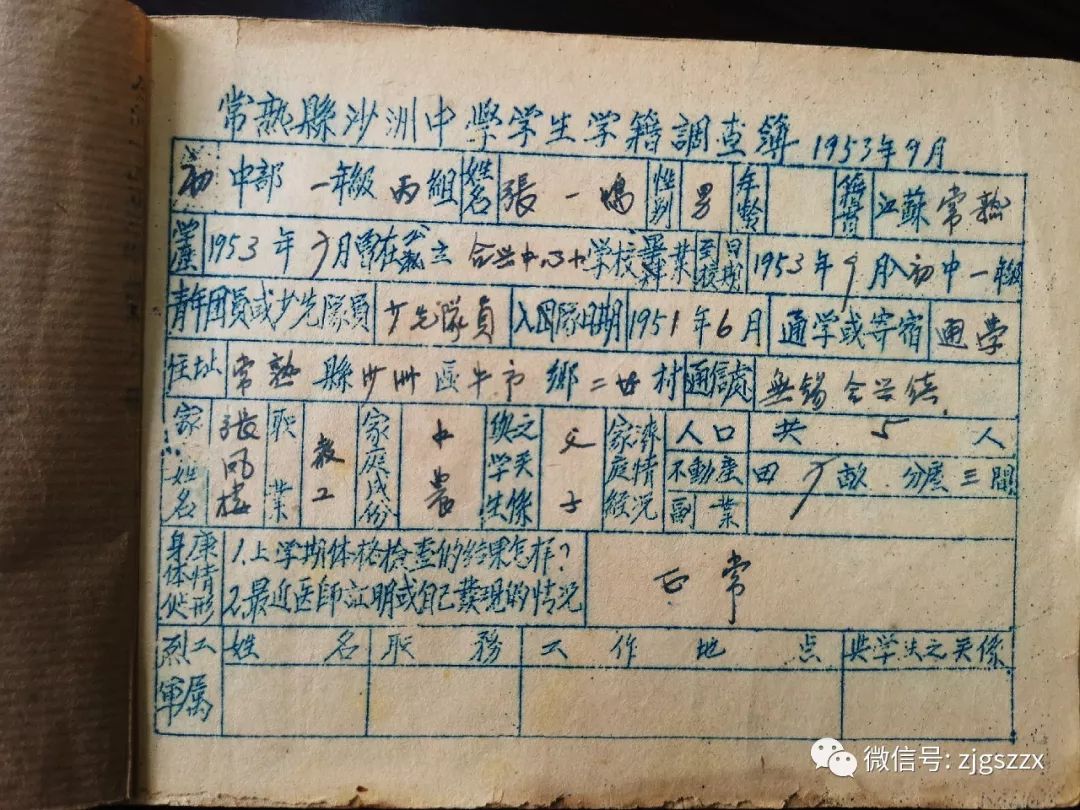 常熟縣沙洲中學学生学籍調查簿 1953年9月
初中部 一年級 丙組 姓名 張一鳴 性別 男 年齡 籍貫 江蘇常熟
学歷 1953年7月曾在公私立合兴中心小学校畢肄業 到校日期 1953年9月入初中一年級
青年团員或少先隊員 少先隊員 入团隊日期 1951年6月 通学或寄宿 通学
住址 常熟縣沙洲區牛市鄉二廿村 通信處 無錫合兴镇
家長姓名 張风 职業 教工 家庭成份 中農 與学生之关係 父子 家庭經济情况 人口 共5人
不動產 田7畝 分屋三間
副業
身体健康情形 1.上学期体格檢查的結果怎样?
2.最近医師証明或自己發現的情况 正常
烈軍工属 姓名 职務 工作地点 與学生之关係
微信号: zjgszzx